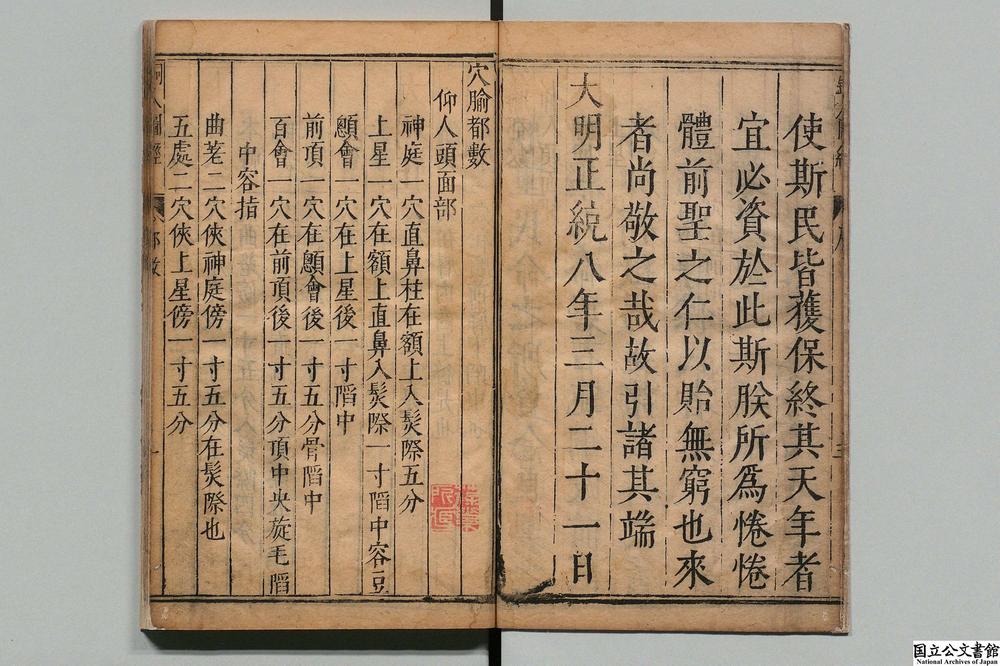 使斯民皆獲保終其天年者
宜必資於此斯朕所爲惓惓
體前聖之仁以貽無窮也來
者尚敬之哉故引諸其端
大明正統八年三月二十一日
穴腧都數
仰人頭面部
神庭一穴直鼻柱在額上入髮際五分
上星一穴在額上直鼻入髮際一寸陷中容豆
顖會一穴在上星後一寸陷中
前項一穴在顖會後一寸五分骨陷中
百會一穴在前項後一寸五分頂中央旋毛陷
中容指
曲差二穴俠神庭傍一寸五分在髮際也
五處二穴俠上星傍一寸五分
國立公文書館
National Archives of Japan